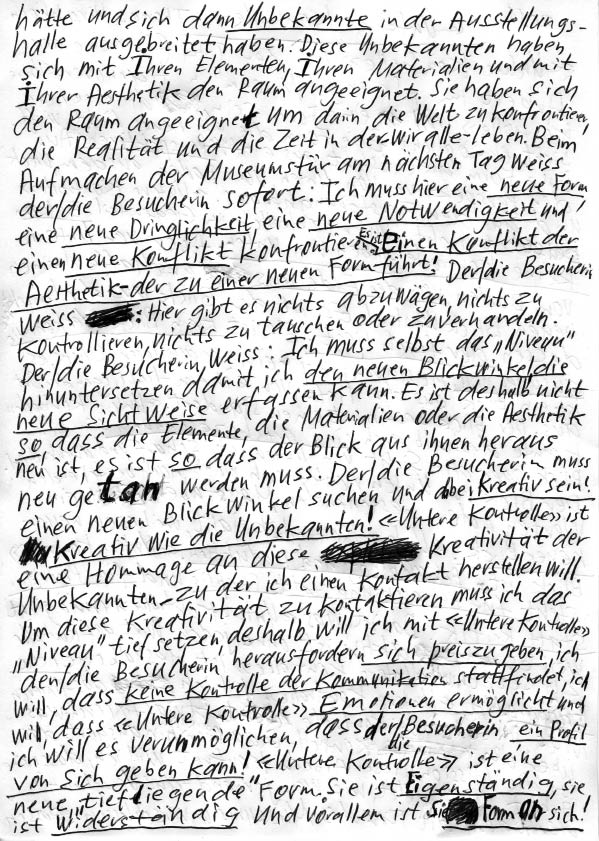 hätte und sich dann Unbekannte in der Ausstellungs-
halle ausgebreitet haben. Diese Unbekannten haben
sich mit Ihren Elementen, Ihren Materialien und mit
Ihrer Aesthetik den Raum angeeignet. Sie haben sich
den Raum angeeignet um darin die Welt zu konfrontieren,
die Realität und die Zeit in der-wir alle-leben. Beim
Aufmachen der Museumstür am nächsten Tag weiss
der/die Besucherin sofort: Ich muss hier eine neue Form,
eine neue Dringlichkeit, eine neue Notwendigkeit und
einen neue Konflikt konfrontieren. Es ist einen Konflikt der
Aesthetik-der zu einer neuen Form führt! Der/die Besucherin
weiss: Hier gibt es nichts abzuwägen, nichts zu
kontrollieren, nichts zu tauschen oder zu verhandeln.
Der/die Besucherin weiss: Ich muss selbst das „Niveau"
hinuntersetzen damit ich den neuen Blickwinkel die
neue Sichtweise erfassen kann. Es ist deshalb nicht
so dass die Elemente, die Materialien oder die Aesthetik
neu ist, es ist so dass der Blick aus ihnen heraus
neu getan werden muss. Der/die Besucherin muss
einen neuen Blickwinkel suchen und dabei Kreativ sein!
Kreativ wie die Unbekannten! «Untere Kontrolle» ist
eine Hommage an diese Kreativität der
Unbekannten-zu der ich einen Kontakt herstellen will.
Um diese Kreativität zu kontaktieren muss ich das
„Niveau" tief setzen, deshalb will ich mit «Untere Kontrolle»
den/die Besucherin herausfordern sich preiszugeben, ich
will, dass keine Kontrolle der Kommunikation stattfindet, ich
will, dass «Untere Kontrolle» Emotionen ermöglicht und
ich will es verunmöglichen, dass der/die Besucherin ein Profil
von sich geben kann! «Untere Kontrolle» ist eine
neue, „tiefliegende" Form. Sie ist Eigenständig, sie
ist Widerständig und vorallem ist Sie Form an sich!